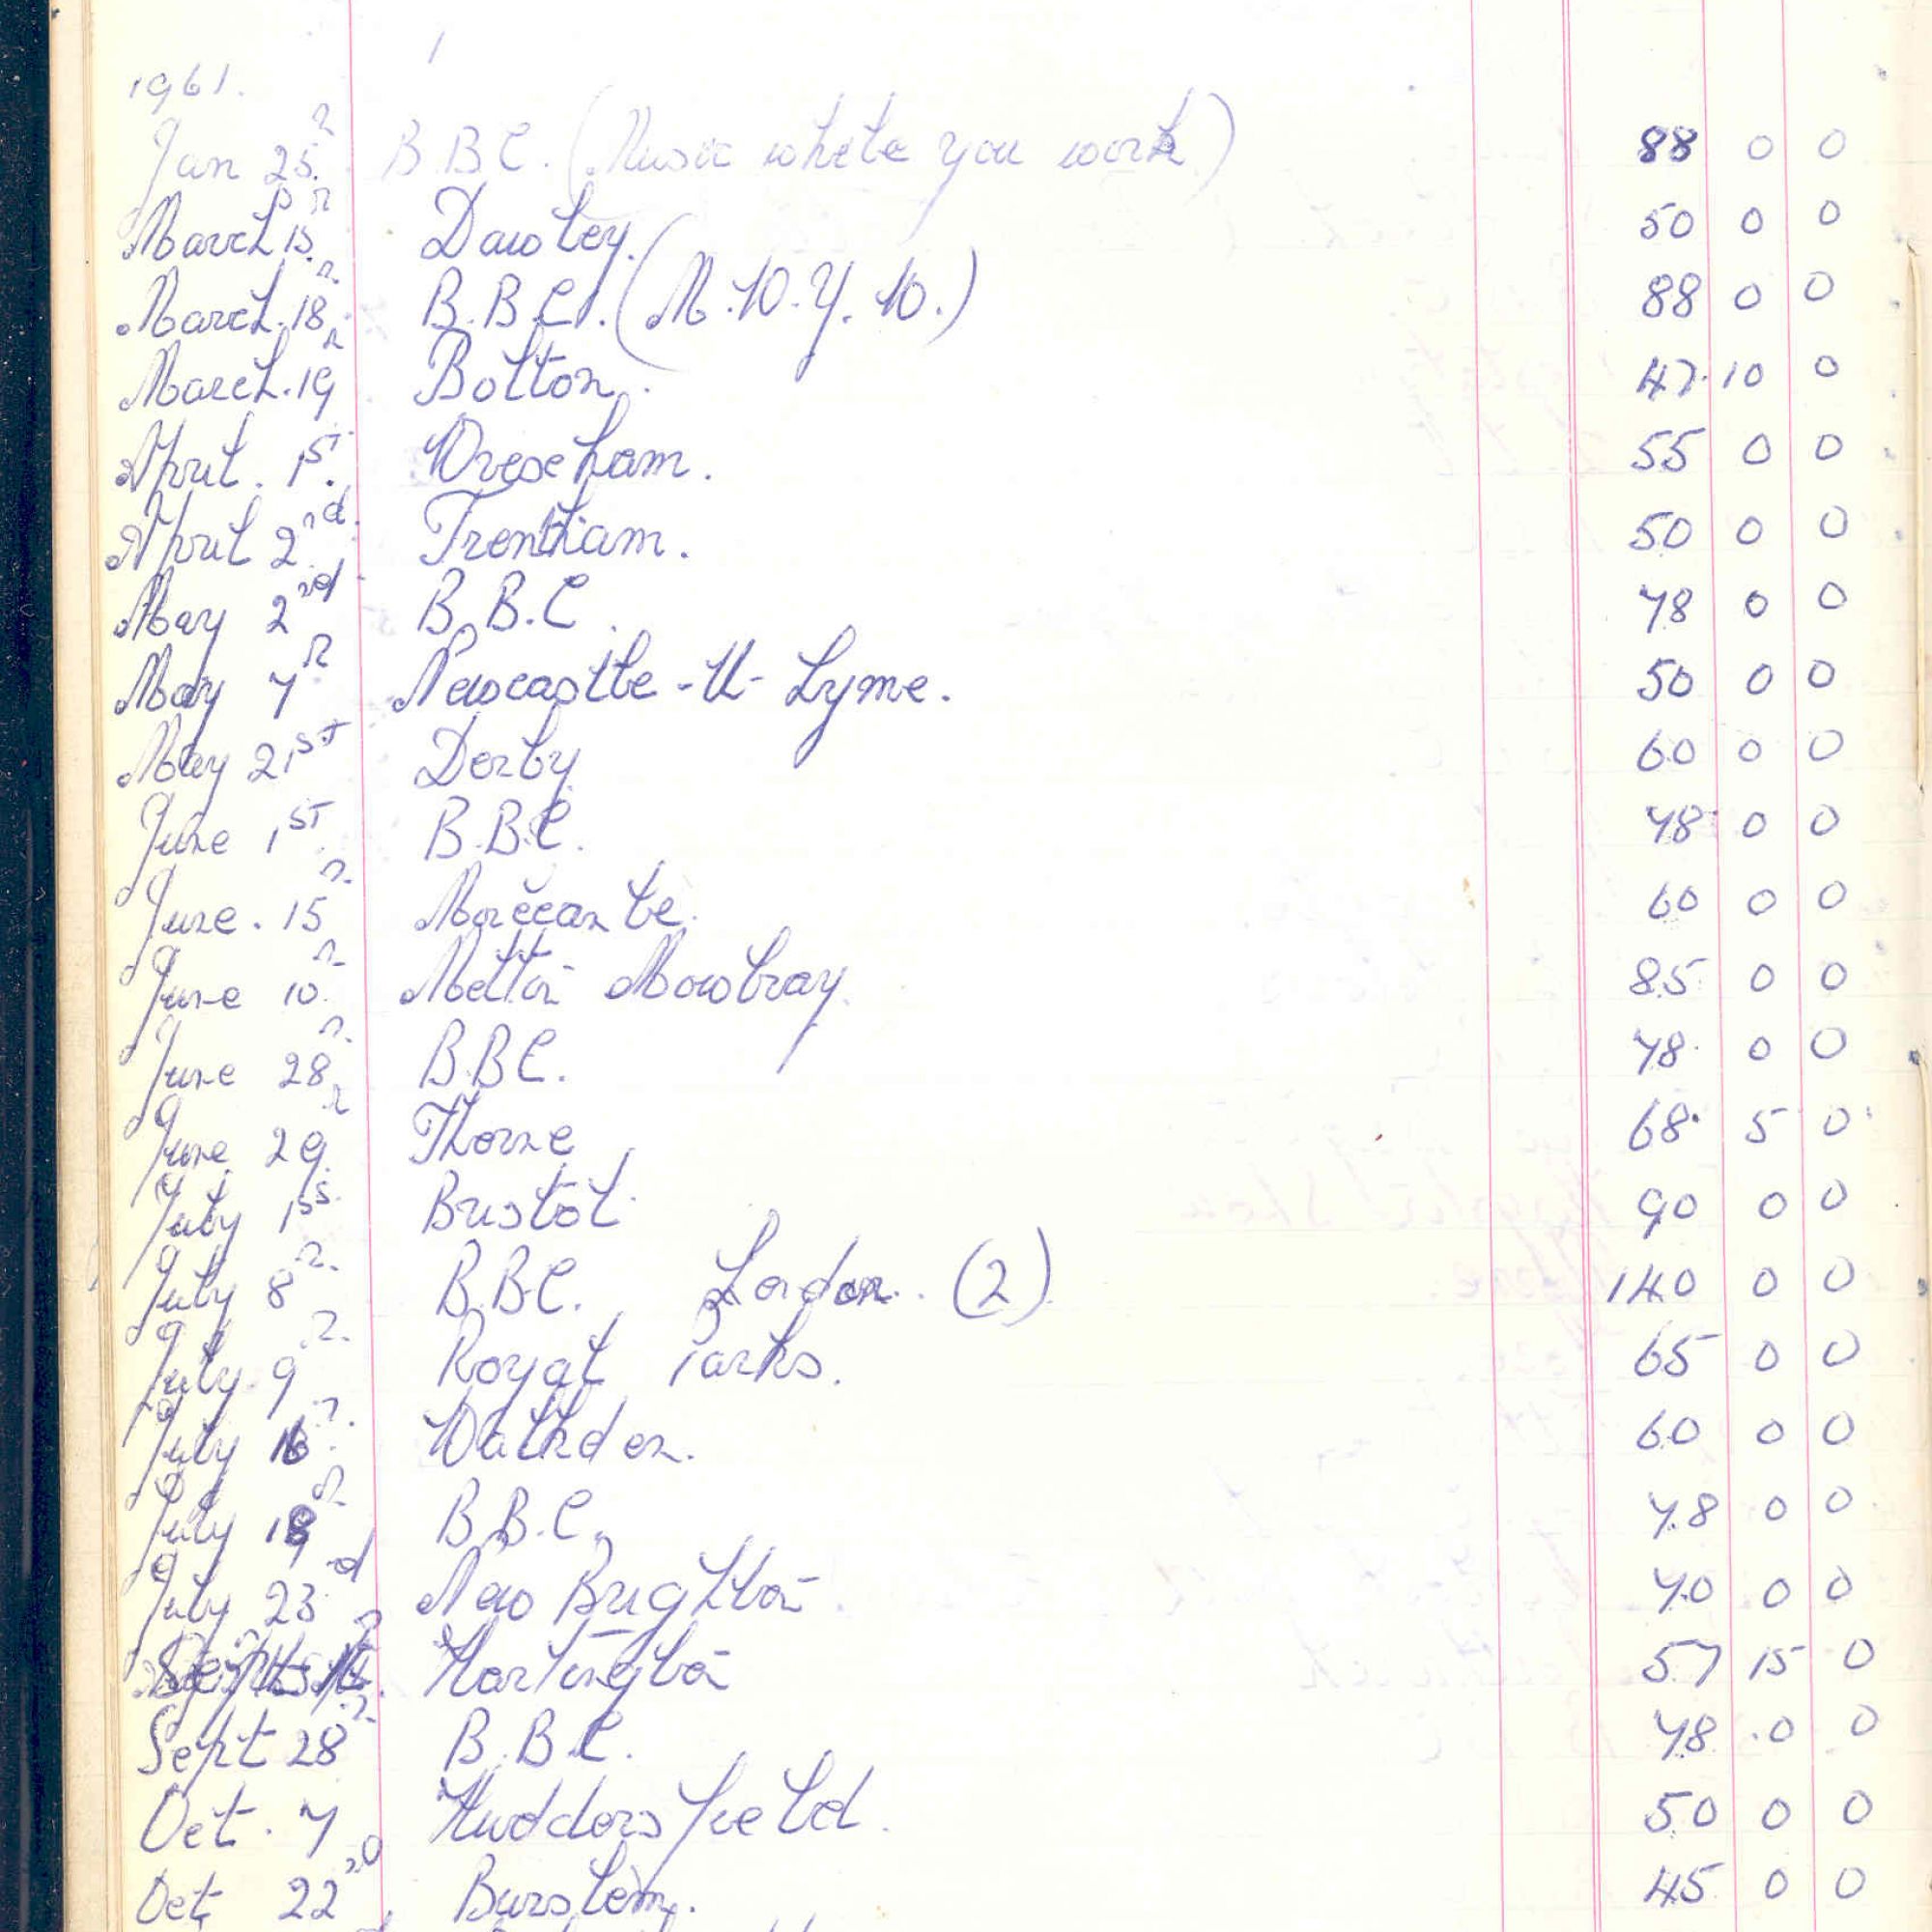 1961.
Jan 25th B.B.C. (Music while you work) 88 0 0
March 15th Dawley. 50 0 0
March. 18th B.B.C. (M.W.Y.W.) 88 0 0
March. 19th Bolton. 47. 10 0
April. 1st. Wrexham. 55 0 0
April 2nd. Trentham. 50 0 0
May 2nd B.B.C. 78 0 0
May 7th Newcastle-U-Lyme. 50 0 0
May 21st Derby. 60 0 0
June 1st. B.B.C. 78 0 0
June. 15th Morecambe. 60 0 0
June 10th Melton Mowbray. 85 0 0
June 28th B.B.C. 78. 0 0
June 29th Thorne 68. 5 0
July 1st Bristol. 90 0 0
July 8th B.B.C. London. (2) 140 0 0
July 9th Royal Parks. 65 0 0
July 16th Walkden. 60 0 0
July 19th B.B.C. 78 0 0
July 23rd New Brighton. 70 0 0
Hartington 57 15 0
Sept 28th B.B.C. 78 0 0
Oct. 7 Huddersfield. 50 0 0
Oct 22nd Burslem. 45 0 0